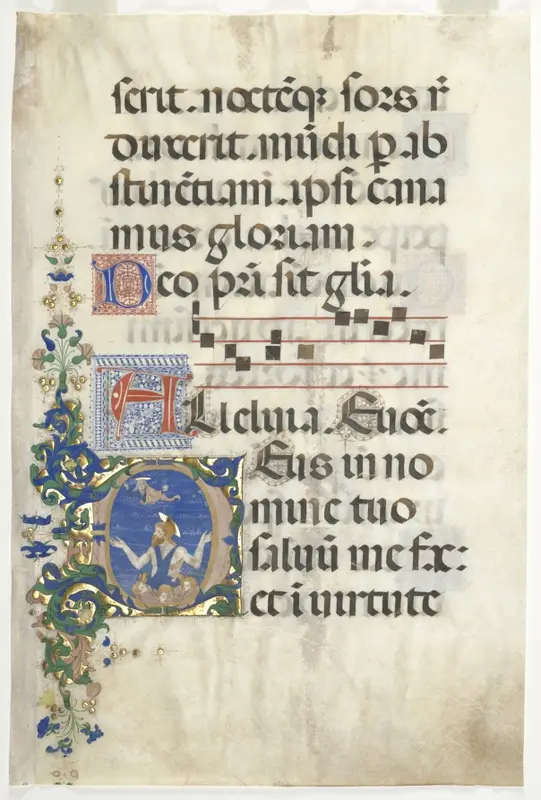 serit. noctēq; sors r̄
duxerit. mūdi p̱ ab
stinētiam. ipsi cana
mus gloriam.
Deo pr̄i sit glīa.
Alleluia. Euoē.
Eus in no
mine tuo
saluū me fac:
et ī uirtute